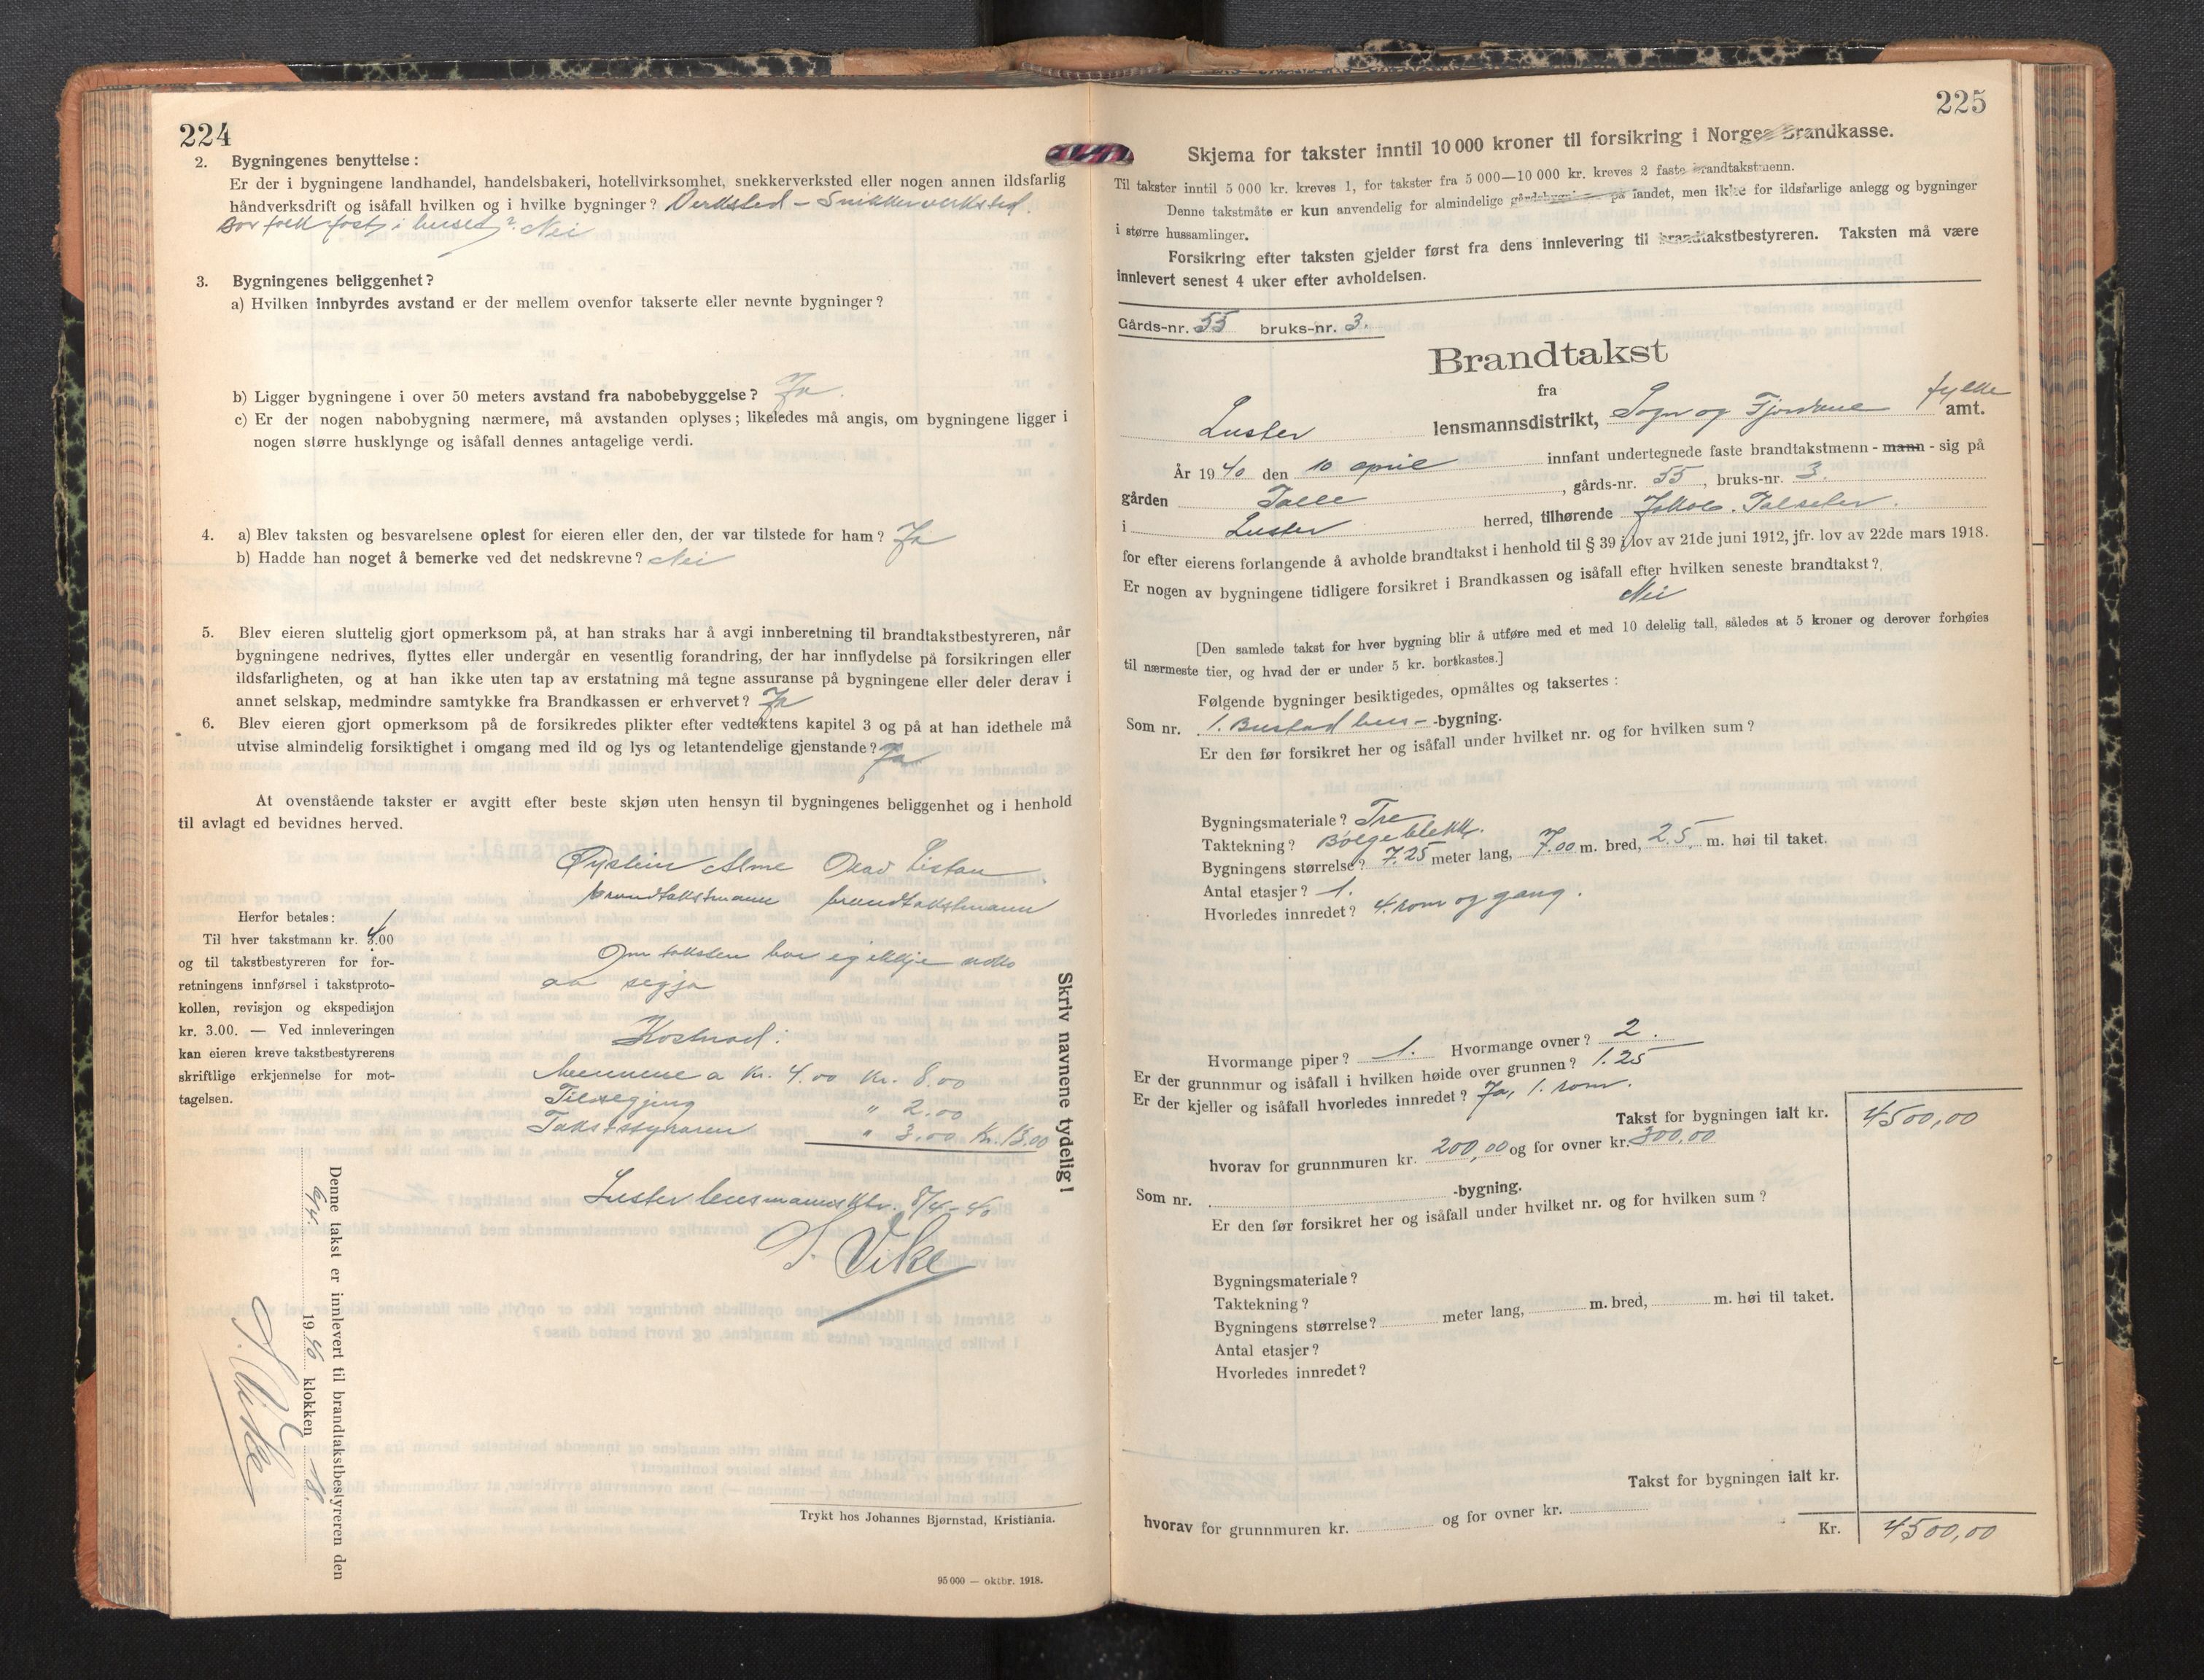 224
2. Bygningenes benyttelse:
Er der i bygningene landhandel, handelsbakeri, hotellvirksomhet, snekkerverksted eller nogen annen ildsfarlig
håndverksdrift og isåfall hvilken og i hvilke bygninger? Verksted - Snikkerverksted.
Bor folk fast i huset? Nei
3. Bygningenes beliggenhet?
a) Hvilken innbyrdes avstand er der mellem ovenfor takserte eller nevnte bygninger?
b) Ligger bygningene i over 50 meters avstand fra nabobebyggelse? Ja.
c) Er der nogen nabobygning nærmere, må avstanden oplyses; likeledes må angis, om bygningene ligger i
nogen større husklynge og isåfall dennes antagelige verdi.
4. a) Blev taksten og besvarelsene oplest for eieren eller den, der var tilstede for ham? Ja
b) Hadde han noget å bemerke ved det nedskrevne? Nei
5. Blev eieren sluttelig gjort opmerksom på, at han straks har å avgi innberetning til brandtakstbestyreren, når
bygningene nedrives, flyttes eller undergår en vesentlig forandring, der har innflydelse på forsikringen eller
ildsfarligheten, og at han ikke uten tap av erstatning må tegne assuranse på bygningene eller deler derav i
annet selskap, medmindre samtykke fra Brandkassen er erhvervet? Ja
6. Blev eieren gjort opmerksom på de forsikredes plikter efter vedtektens kapitel 3 og på at han idethele må
utvise almindelig forsiktighet i omgang med ild og lys og letantendelige gjenstande? Ja
At ovenstående takster er avgitt efter beste skjøn uten hensyn til bygningenes beliggenhet og i henhold
til avlagt ed bevidnes herved.
Øystein Alme Olav
brandtakstmann brandtakstmann
Herfor betales:
Til hver takstmann kr. 4.00
og til takstbestyreren for for-
retningens innførsel i takstproto-
kollen, revisjon og ekspedisjon
kr. 3.00. — Ved innleveringen
kan eieren kreve takstbestyrerens
skriftlige erkjennelse for mot-
tagelsen.
Om taksten har eg ikkje noko
aa segja
Kostnad:
Mennene a kr. 4.00 kr. 8.00
Tilsegjing " 2.00
Takststyraren " 3.00 Kr. 13.00
Luster lensmannsktr. 8/4-40
S. Vike
Skriv navnene tydelig!
Denne takst er innlevert til brandtakstbestyreren den
6/4. 1940 klokken 18.
S. Vike
Trykt hos Johannes Bjørnstad, Kristiania.
95 000 — oktbr. 1918.
225
Skjema for takster inntil 10 000 kroner til forsikring i Norges Brandkasse.
Til takster inntil 5 000 kr. kreves 1, for takster fra 5 000—10 000 kr. kreves 2 faste brandtakstmenn.
Denne takstmåte er kun anvendelig for almindelige gårdsbygninger på landet, men ikke for ildsfarlige anlegg og bygninger
i større hussamlinger.
Forsikring efter taksten gjelder først fra dens innlevering til brandtakstbestyreren. Taksten må være
innlevert senest 4 uker efter avholdelsen.
Gårds-nr. 55 bruks-nr. 3.
Brandtakst
fra
Luster lensmannsdistrikt, Sogn og Fjordane fylke amt.
År 1940 den 10 april innfant undertegnede faste brandtakstmenn - mann - sig på
gården Talle, gårds-nr. 55, bruks-nr. 3.
i Luster herred, tilhørende Jakob Talseter.
for efter eierens forlangende å avholde brandtakst i henhold til § 39 i lov av 21de juni 1912, jfr. lov av 22de mars 1918.
Er nogen av bygningene tidligere forsikret i Brandkassen og isåfall efter hvilken seneste brandtakst?
Nei
[Den samlede takst for hver bygning blir å utføre med et med 10 delelig tall, således at 5 kroner og derover forhøies
til nærmeste tier, og hvad der er under 5 kr. bortkastes.]
Følgende bygninger besiktigedes, opmåltes og taksertes:
Som nr. 1. Bustadhus- -bygning.
Er den før forsikret her og isåfall under hvilket nr. og for hvilken sum?
Bygningsmateriale? Tre
Taktekning? Bølgeblekk.
Bygningens størrelse? 7.25 meter lang, 7.00 m. bred, 2.5. m. høi til taket.
Antal etasjer? 1.
Hvorledes innredet? 4. rom og gang.
Hvormange piper? 1. Hvormange ovner? 2.
Er der grunnmur og isåfall i hvilken høide over grunnen? 1.25
Er der kjeller og isåfall hvorledes innredet? Ja, 1. rom.
Takst for bygningen ialt kr. 4500,00
hvorav for grunnmuren kr. 200,00 og for ovner kr. 300,00
Som nr. -bygning.
Er den før forsikret her og isåfall under hvilket nr. og for hvilken sum?
Bygningsmateriale?
Taktekning?
Bygningens størrelse? meter lang, m. bred, m. høi til taket.
Antal etasjer?
Hvorledes innredet?
Takst for bygningen ialt kr.
hvorav for grunnmuren kr. og for ovner kr.
Kr. 4500,00